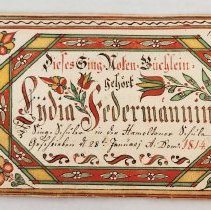 Dieses Sing-Noten-Büchlein
gehört
Lÿdia Ledermännin
Sing-Schüler in der Hamiltoner Schule
Geschrieben d. 28t Januarj A. Dom. 1814